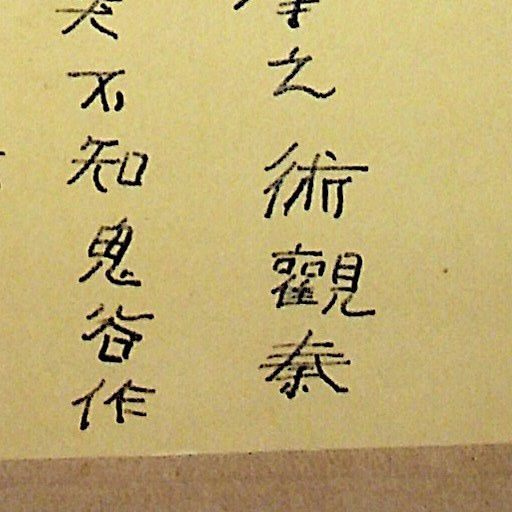 之術觀秦
不知鬼谷作